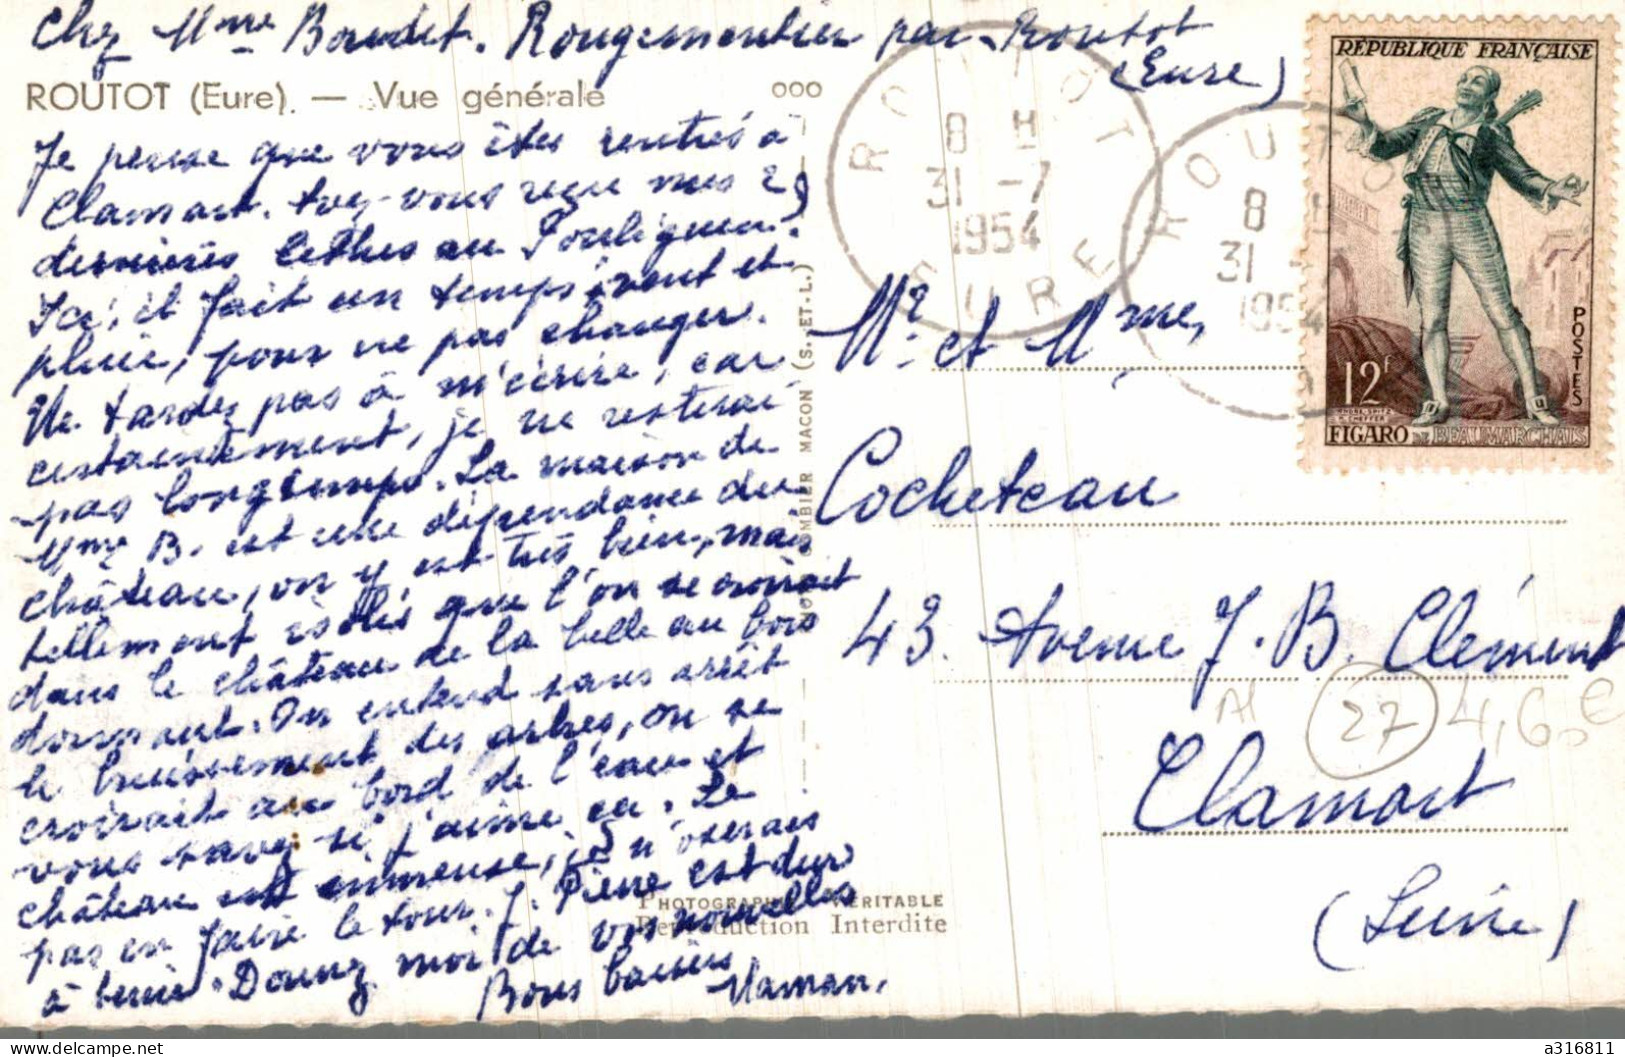 Chez Mme Boudet. Rougemontier par Routot
(Eure)
ROUTOT (Eure). — Vue générale
000
Je pense que vous êtes rentrés à
Clamart. Avez-vous reçu mes 2
dernières lettres au Pouliguen?
Ici, il fait un temps, vent et
pluie, pour ne pas changer.
Ne tardez pas à m'écrire, car
certainement, je ne resterai
pas longtemps. La maison de
Mme B. est une dépendance du
château, on y est très bien, mais
tellement isolés que l'on se croirait
dans le château de la belle au bois
dormant. On entend sans arrêt
le bruissement des arbres, on se
croirait au bord de l'eau et
vous savez si j'aime ça. Le
château est immense, je n'oserais
pas en faire le tour. J. Pierre est dur
à tenir. Donnez moi de vos nouvelles
Bons baisers
Maman.
PHOTOGRAPHIE VÉRITABLE
Reproduction Interdite
COMBIER MACON (S. ET. L.)
ROUTOT
8 H
31 -7
1954
EURE
ROUTOT
8 H
31
1954
RÉPUBLIQUE FRANÇAISE
POSTES
12f
FIGARO DE BEAUMARCHAIS
Mr et Mme,
Cocheteau
43 Avenue J. B. Clément
27
Clamart
(Seine)
a316811